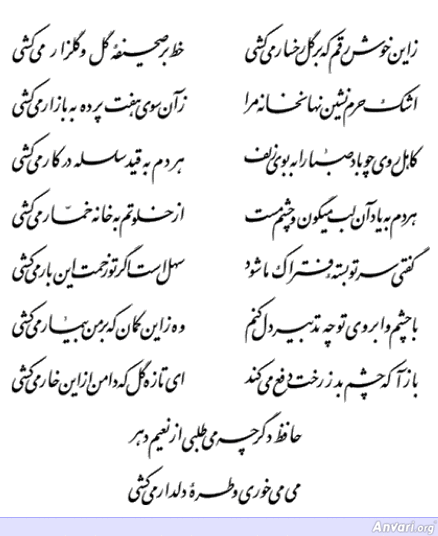 زاین خوش رقم که بر گل رخسار می‌کشی
خط بر صحیفهٔ گل و گلزار می‌کشی
اشک حرم نشین نهانخانه مرا
زآن سوی هفت پرده به بازار می‌کشی
کاهل روی چو باد صبا را به بوی زلف
هر دم به قید سلسله در کار می‌کشی
هر دم به یاد آن لب میگون و چشم مست
از خلوتم به خانه خمّار می‌کشی
گفتی سر تو بسته فتراک ما شود
سهل است اگر تو زحمت این بار می‌کشی
با چشم و ابروی تو چه تدبیر دل کنم
وه زاین کمان که بر من بیمار می‌کشی
بازآ که چشم بد ز رخت دفع می‌کند
ای تازه گل که دامن از این خار می‌کشی
حافظ دگر چه می‌طلبی از نعیم دهر
می می‌خوری و طرهٔ دلدار می‌کشی
Anvari.org